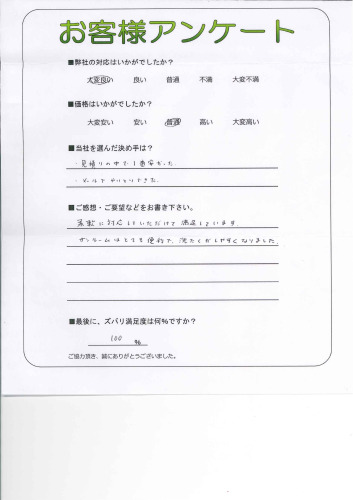 お客様アンケート
■弊社の対応はいかがでしたか?
大変良い 良い 普通 不満 大変不満
■価格はいかがでしたか?
大変安い 安い 普通 高い 大変高い
■当社を選んだ決め手は?
・見積りの中で1番安かった
・メールでやりとりできた
■ご感想・ご要望などをお書き下さい。
柔軟に対応していただけて満足しています
サンルームはとても便利で、洗たくがしやすくなりました
■最後に、ズバリ満足度は何%ですか?
100 %
ご協力頂き、誠にありがとうございました。